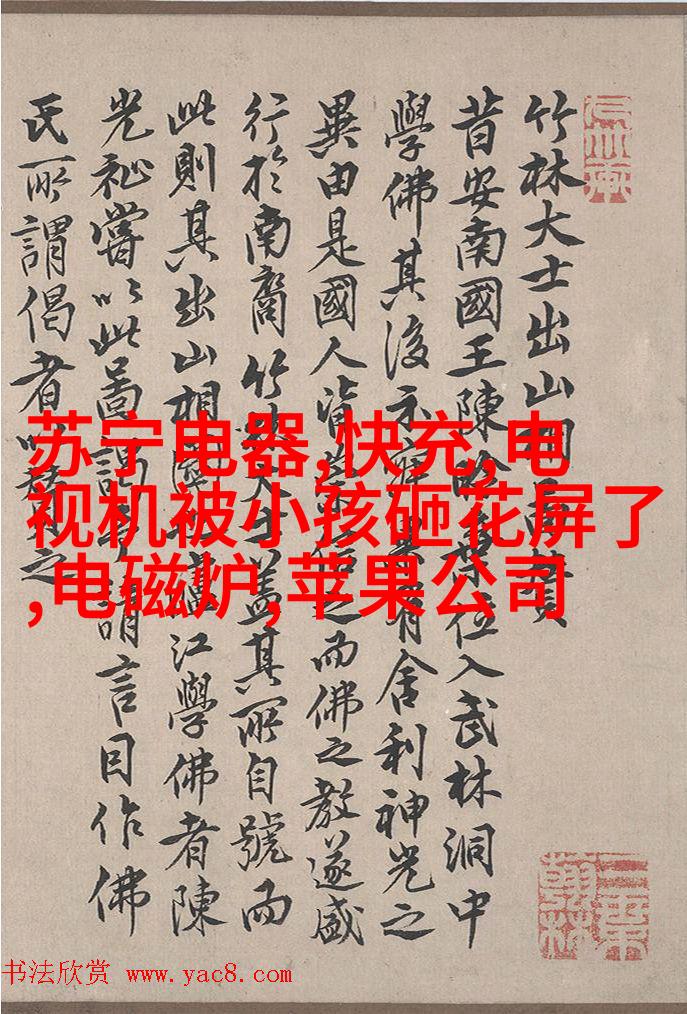 竹林大士出山
昔安南國王陳位入武林洞中
學佛其後示有舍利神光之
異由是國人皆信之而佛之教遂盛
行於南裔竹林大士蓋其所自號而
此則其出山相江學佛者陳
光祉嘗以此圖謁予請言因作佛
氏所謂偈者以之
苏宁电器,快充,电
视机被小孩砸花屏了
,电磁炉,苹果公司
书法欣赏 www.yac8.com